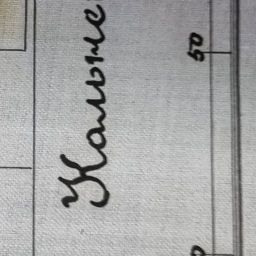 Кальне
50